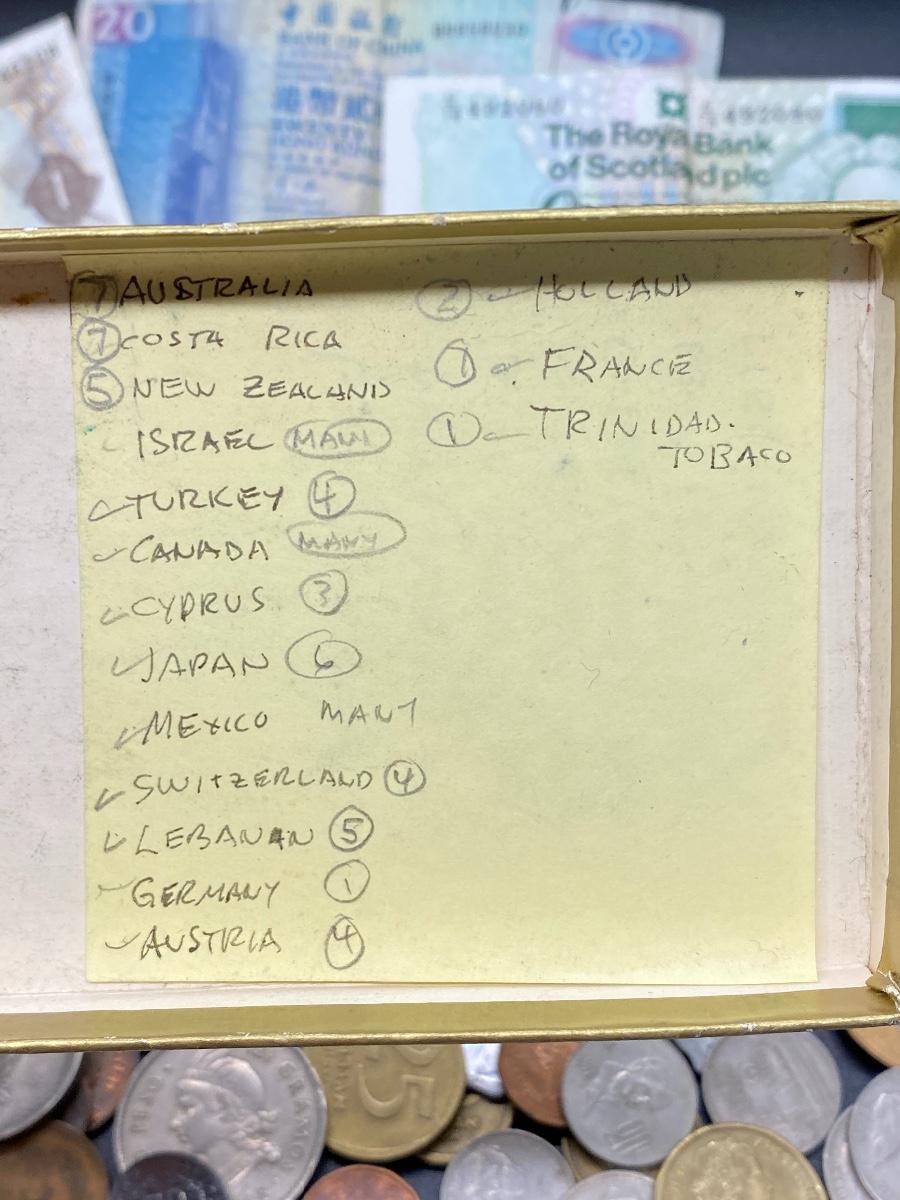 20
中国
BANK OF CHINA
The Royal Bank
of Scotland plc
7 AUSTRALIA
7 COSTA RICA
5 NEW ZEALAND
ISRAEL MANY
TURKEY 4
CANADA MANY
CYPRUS 3
JAPAN 6
MEXICO MANY
SWITZERLAND 4
LEBANAN 5
GERMANY 1
AUSTRIA 4
2 HOLLAND
1 FRANCE
1 TRINIDAD.
TOBACO
25